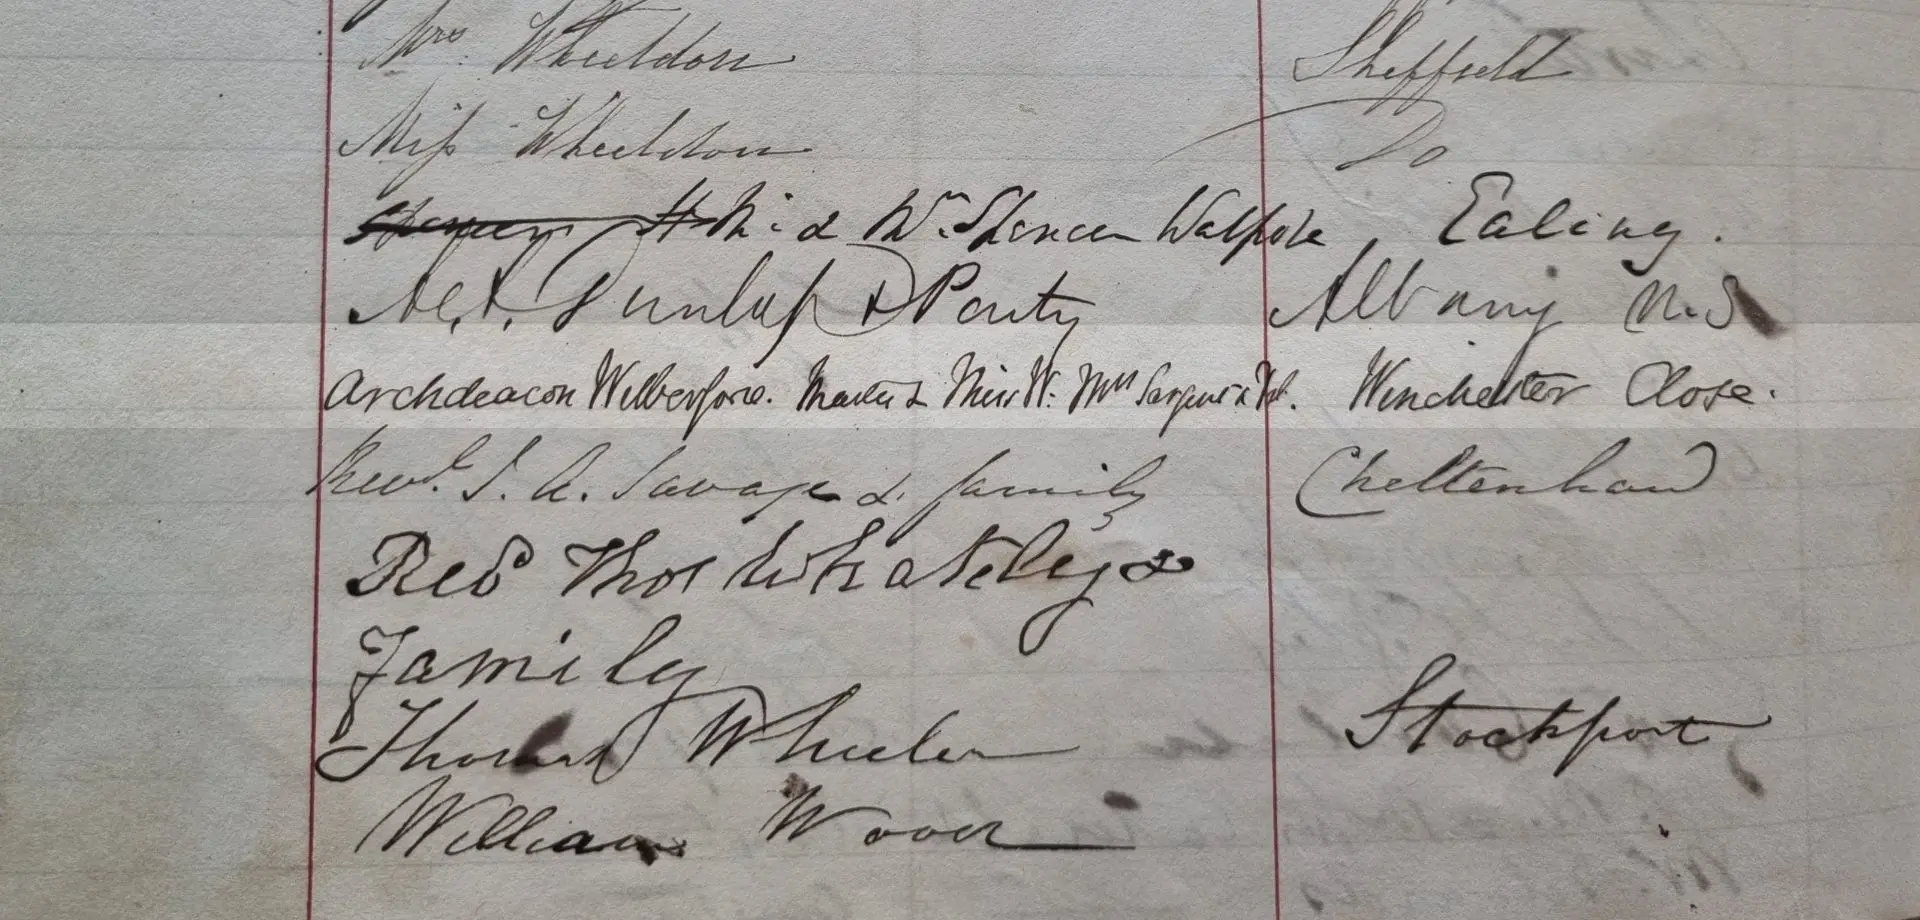 Mrs. Wheeldon Sheffield
Miss Wheeldon Do
Mr. & Mrs. Spencer Walpole, Ealing.
Dunlap & Party Albany N.S
Archdeacon Wilberforce. Master & Miss W. Mrs Sargent Winchester Close.
Revd. J. A. Savage & family Cheltenham
Revd Thos Whateley &
Family
Thomas Wheeler Stockport
William Wood